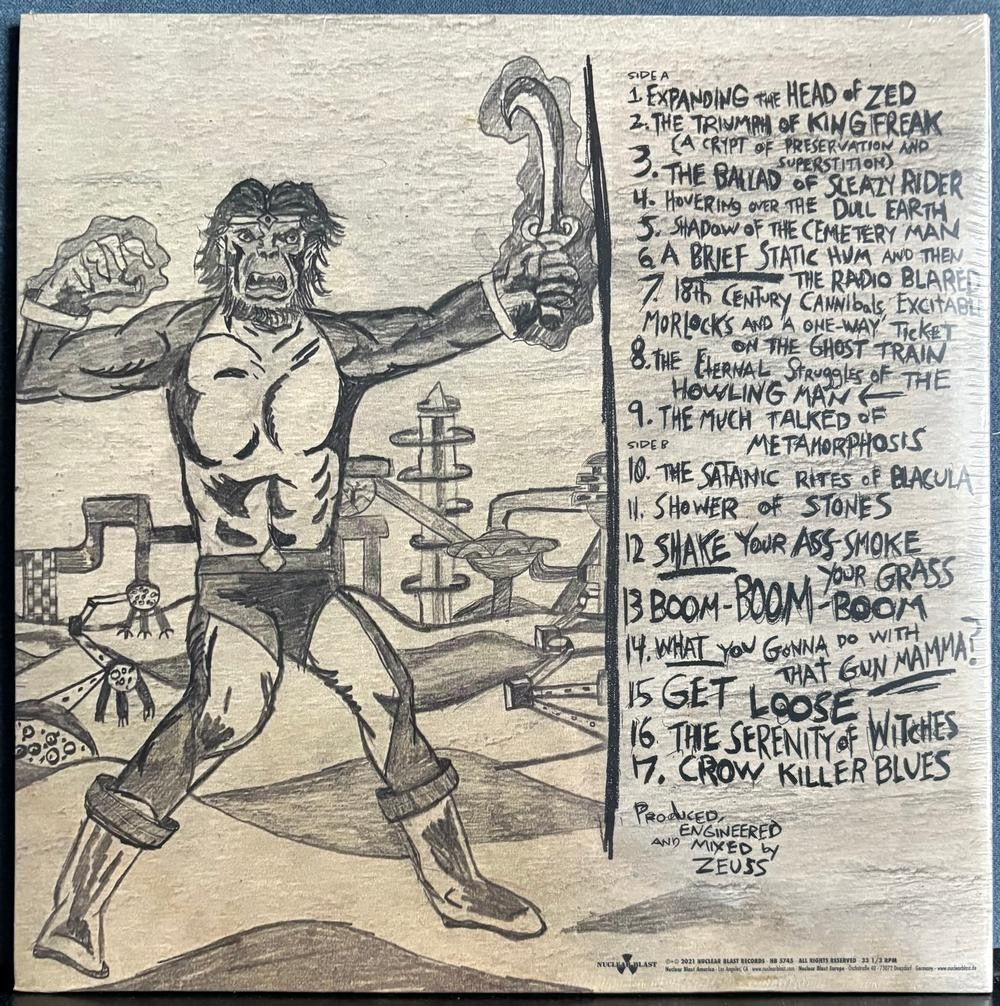 SIDE A
1. EXPANDING THE HEAD OF ZED
2. THE TRIUMPH OF KING FREAK
(A CRYPT OF PRESERVATION AND
SUPERSTITION)
3. THE BALLAD OF SLEAZY RIDER
4. HOVERING OVER THE DULL EARTH
5. SHADOW OF THE CEMETERY MAN
6 A BRIEF STATIC HUM AND THEN
THE RADIO BLARED
7. 18th CENTURY CANNIBALS, EXCITABLE
MORLOCKS AND A ONE-WAY TICKET
ON THE GHOST TRAIN
8. THE ETERNAL STRUGGLES OF THE
HOWLING MAN ←
9. THE MUCH TALKED OF
METAMORPHOSIS
SIDE B
10. THE SATANIC RITES OF BLACULA
11. SHOWER OF STONES
12 SHAKE YOUR ASS-SMOKE
YOUR GRASS
13 BOOM-BOOM-BOOM
14. WHAT YOU GONNA DO WITH
THAT GUN MAMMA?
15 GET LOOSE
16. THE SERENITY OF WITCHES
17. CROW KILLER BLUES
PRODUCED,
ENGINEERED
AND MIXED by
ZEUSS
NUCLEAR BLAST
℗+© 2021 NUCLEAR BLAST RECORDS · NB 5745 · ALL RIGHTS RESERVED 33 1/3 RPM
Nuclear Blast America · Los Angeles, CA · www.nuclearblast.com · Nuclear Blast Europe · Oeschstraße 40 · 73072 Donzdorf · Germany · www.nuclearblast.de